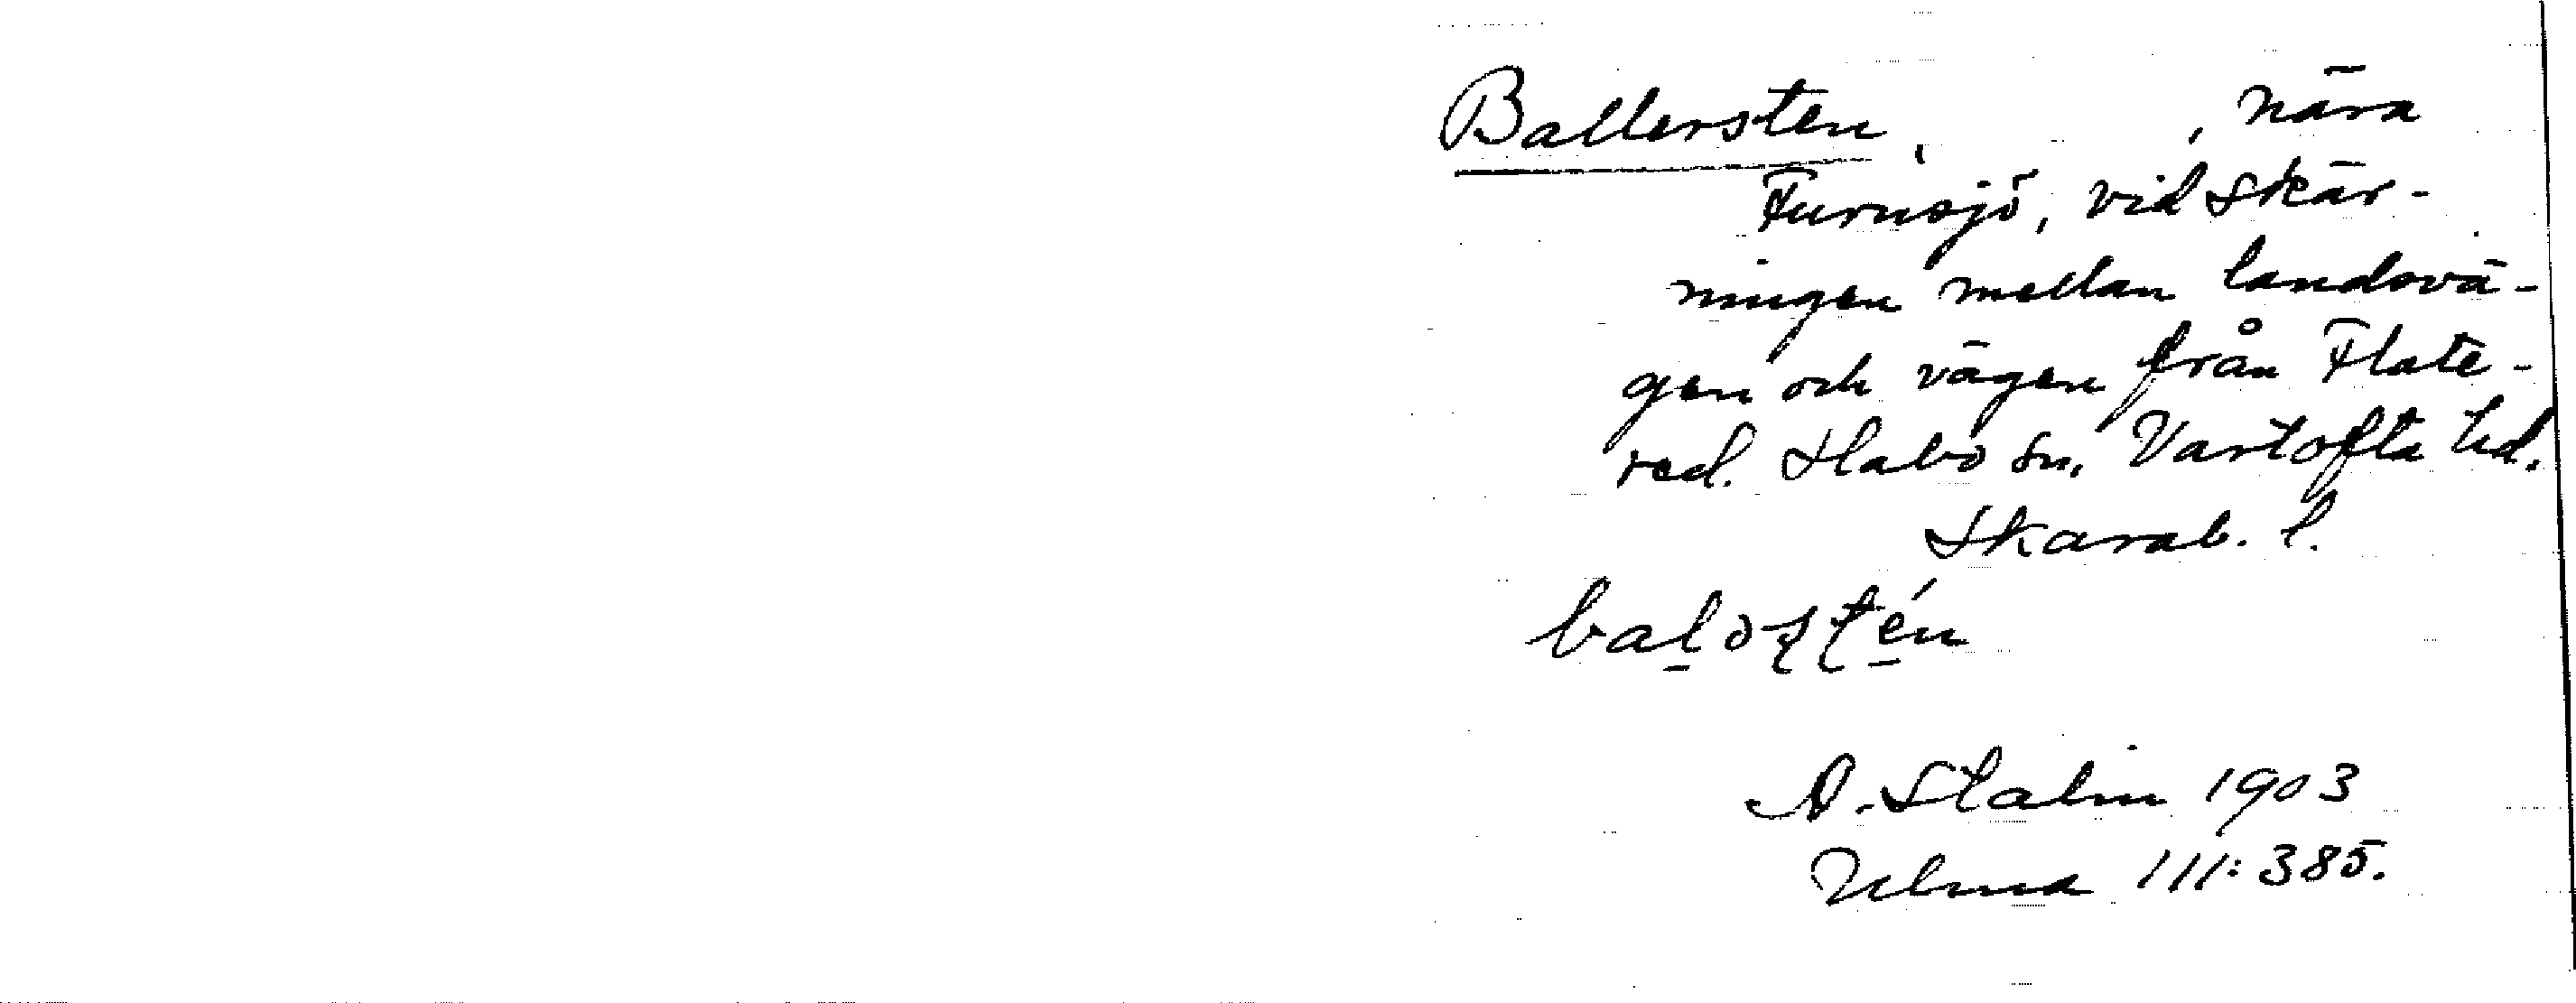 Ballersten, , nära
Furusjö, vid skär-
ningen mellan landsvä-
gen och vägen från Flate-
red. Habo sn, Vartofta hd.
Skarab. l.
A. Stalin 1903
Ulma 111:385.